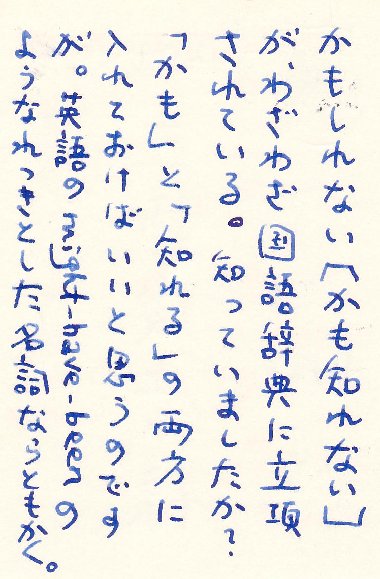 かもしれない[かも知れない]
が、わざわざ国語辞典に立項
されている。知っていましたか?
「かも」と「知れる」の両方に
入れておけばいいと思うのです
が。英語のmight-have-beenの
ようなれっきとした名詞ならともかく。